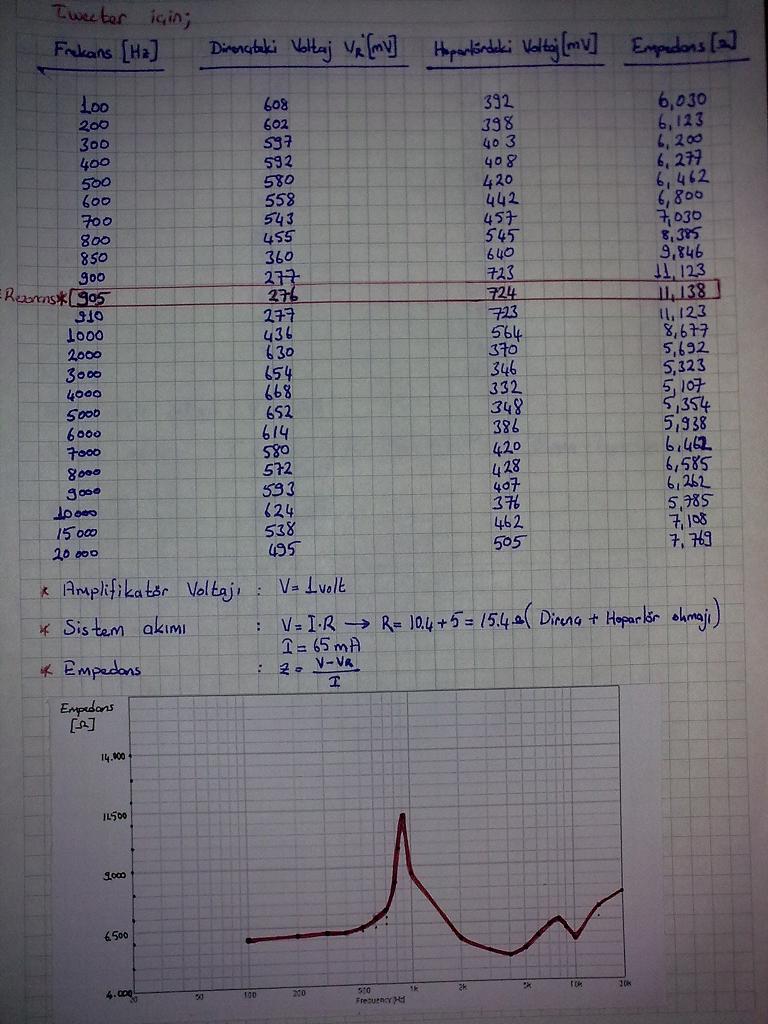 Tweeter için;
Frekans [Hz] Dirençteki Voltaj VR [mV] Hoparlördeki Voltaj [mV] Empedans [Ω]
100 608 392 6,030
200 602 398 6,123
300 597 403 6,200
400 592 408 6,277
500 580 420 6,462
600 558 442 6,800
700 543 457 7,030
800 455 545 8,385
850 360 640 9,846
900 277 723 11,123
Rezonans* 905 276 724 11,138
910 277 723 11,123
1000 436 564 8,677
2000 630 370 5,692
3000 654 346 5,323
4000 668 332 5,107
5000 652 348 5,354
6000 614 386 5,938
7000 580 420 6,462
8000 572 428 6,585
9000 593 407 6,262
10000 624 376 5,785
15000 538 462 7,108
20000 495 505 7,769
* Amplifikatör Voltajı : V= 1 volt
* Sistem akımı : V= I.R → R= 10.4+5 = 15.4 Ω (Direnç + Hoparlör ohmajı)
I = 65 mA
* Empedans : Z = V-VR / I
Empedans
[Ω]
14.000
11.500
9.000
6.500
4.000
20 50 100 200 500 1k 2k 5k 10k 20k
Frequency [Hz]